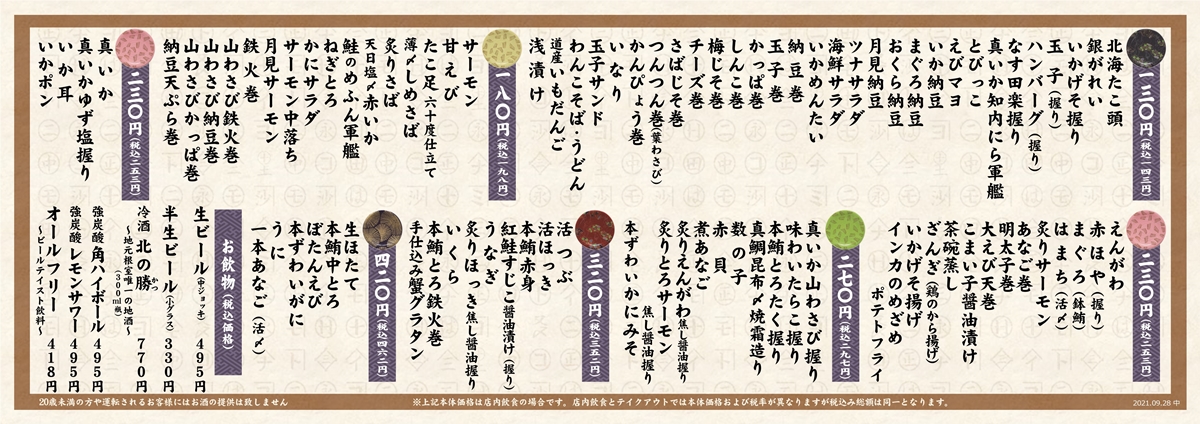 一三〇円(税込一四三円)
北海たこ頭
銀がれい
いかげそ握り
玉子(握り)
ハンバーグ(握り)
なす田楽握り
真いか知内にら軍艦
とびっこ
えびマヨ
いか納豆
まぐろ納豆
おくら納豆
月見納豆
ツナサラダ
海鮮サラダ
いかめんたい
納豆巻
玉子巻
かっぱ巻
しんこ巻
梅じそ巻
チーズ巻
さばじそ巻
つんつん巻(葉わさび)
かんぴょう巻
いなり
玉子サンド
わんこそば・うどん
道産いもだんご
浅漬け
一八〇円(税込一九八円)
サーモン
甘えび
たこ足 六十度仕立て
薄〆しめさば
炙りさば
天日塩〆赤いか
鮭のめふん軍艦
ねぎとろ
かにサラダ
サーモン中落ち
月見サーモン
鉄火巻
山わさび鉄火巻
山わさび納豆巻
山わさびかっぱ巻
納豆天ぷら巻
二三〇円(税込二五三円)
真いか
真いかゆず塩握り
いか耳
いかポン
二三〇円(税込二五三円)
えんがわ
赤ほや(握り)
まぐろ(鉢鮪)
はまち(活〆)
炙りサーモン
あなご巻
明太子巻
大えび天巻
こまい子醤油漬け
茶碗蒸し
ざんぎ(鶏のから揚げ)
いかげそ揚げ
インカのめざめ
ポテトフライ
二七〇円(税込二九七円)
真いか山わさび握り
味わいたらこ握り
本鮪とろたく握り
真鯛昆布〆焼霜造り
数の子
赤貝
煮あなご
炙りえんがわ焦し醤油握り
炙りとろサーモン
焦し醤油握り
本ずわいかにみそ
三二〇円(税込三五二円)
活つぶ
活ほっき
本鮪赤身
紅鮭すじこ醤油漬け(握り)
うなぎ
炙りほっき焦し醤油握り
いくら
本鮪とろ鉄火巻
手仕込み蟹グラタン
四二〇円(税込四六二円)
生ほたて
本鮪中とろ
ぼたんえび
本ずわいがに
うに
一本あなご(活〆)
お飲物(税込価格)
生ビール(中ジョッキ) 495円
半生ビール(小グラス) 330円
冷酒 北の勝 770円
かつ
~地元根室唯一の地酒~
(300ml瓶)
強炭酸角ハイボール 495円
強炭酸レモンサワー 495円
オールフリー 418円
~ビールテイスト飲料~
20歳未満の方や運転されるお客様にはお酒の提供は致しません
※上記本体価格は店内飲食の場合です。店内飲食とテイクアウトでは本体価格および税率が異なりますが税込み総額は同一となります。
2021.09.28 中